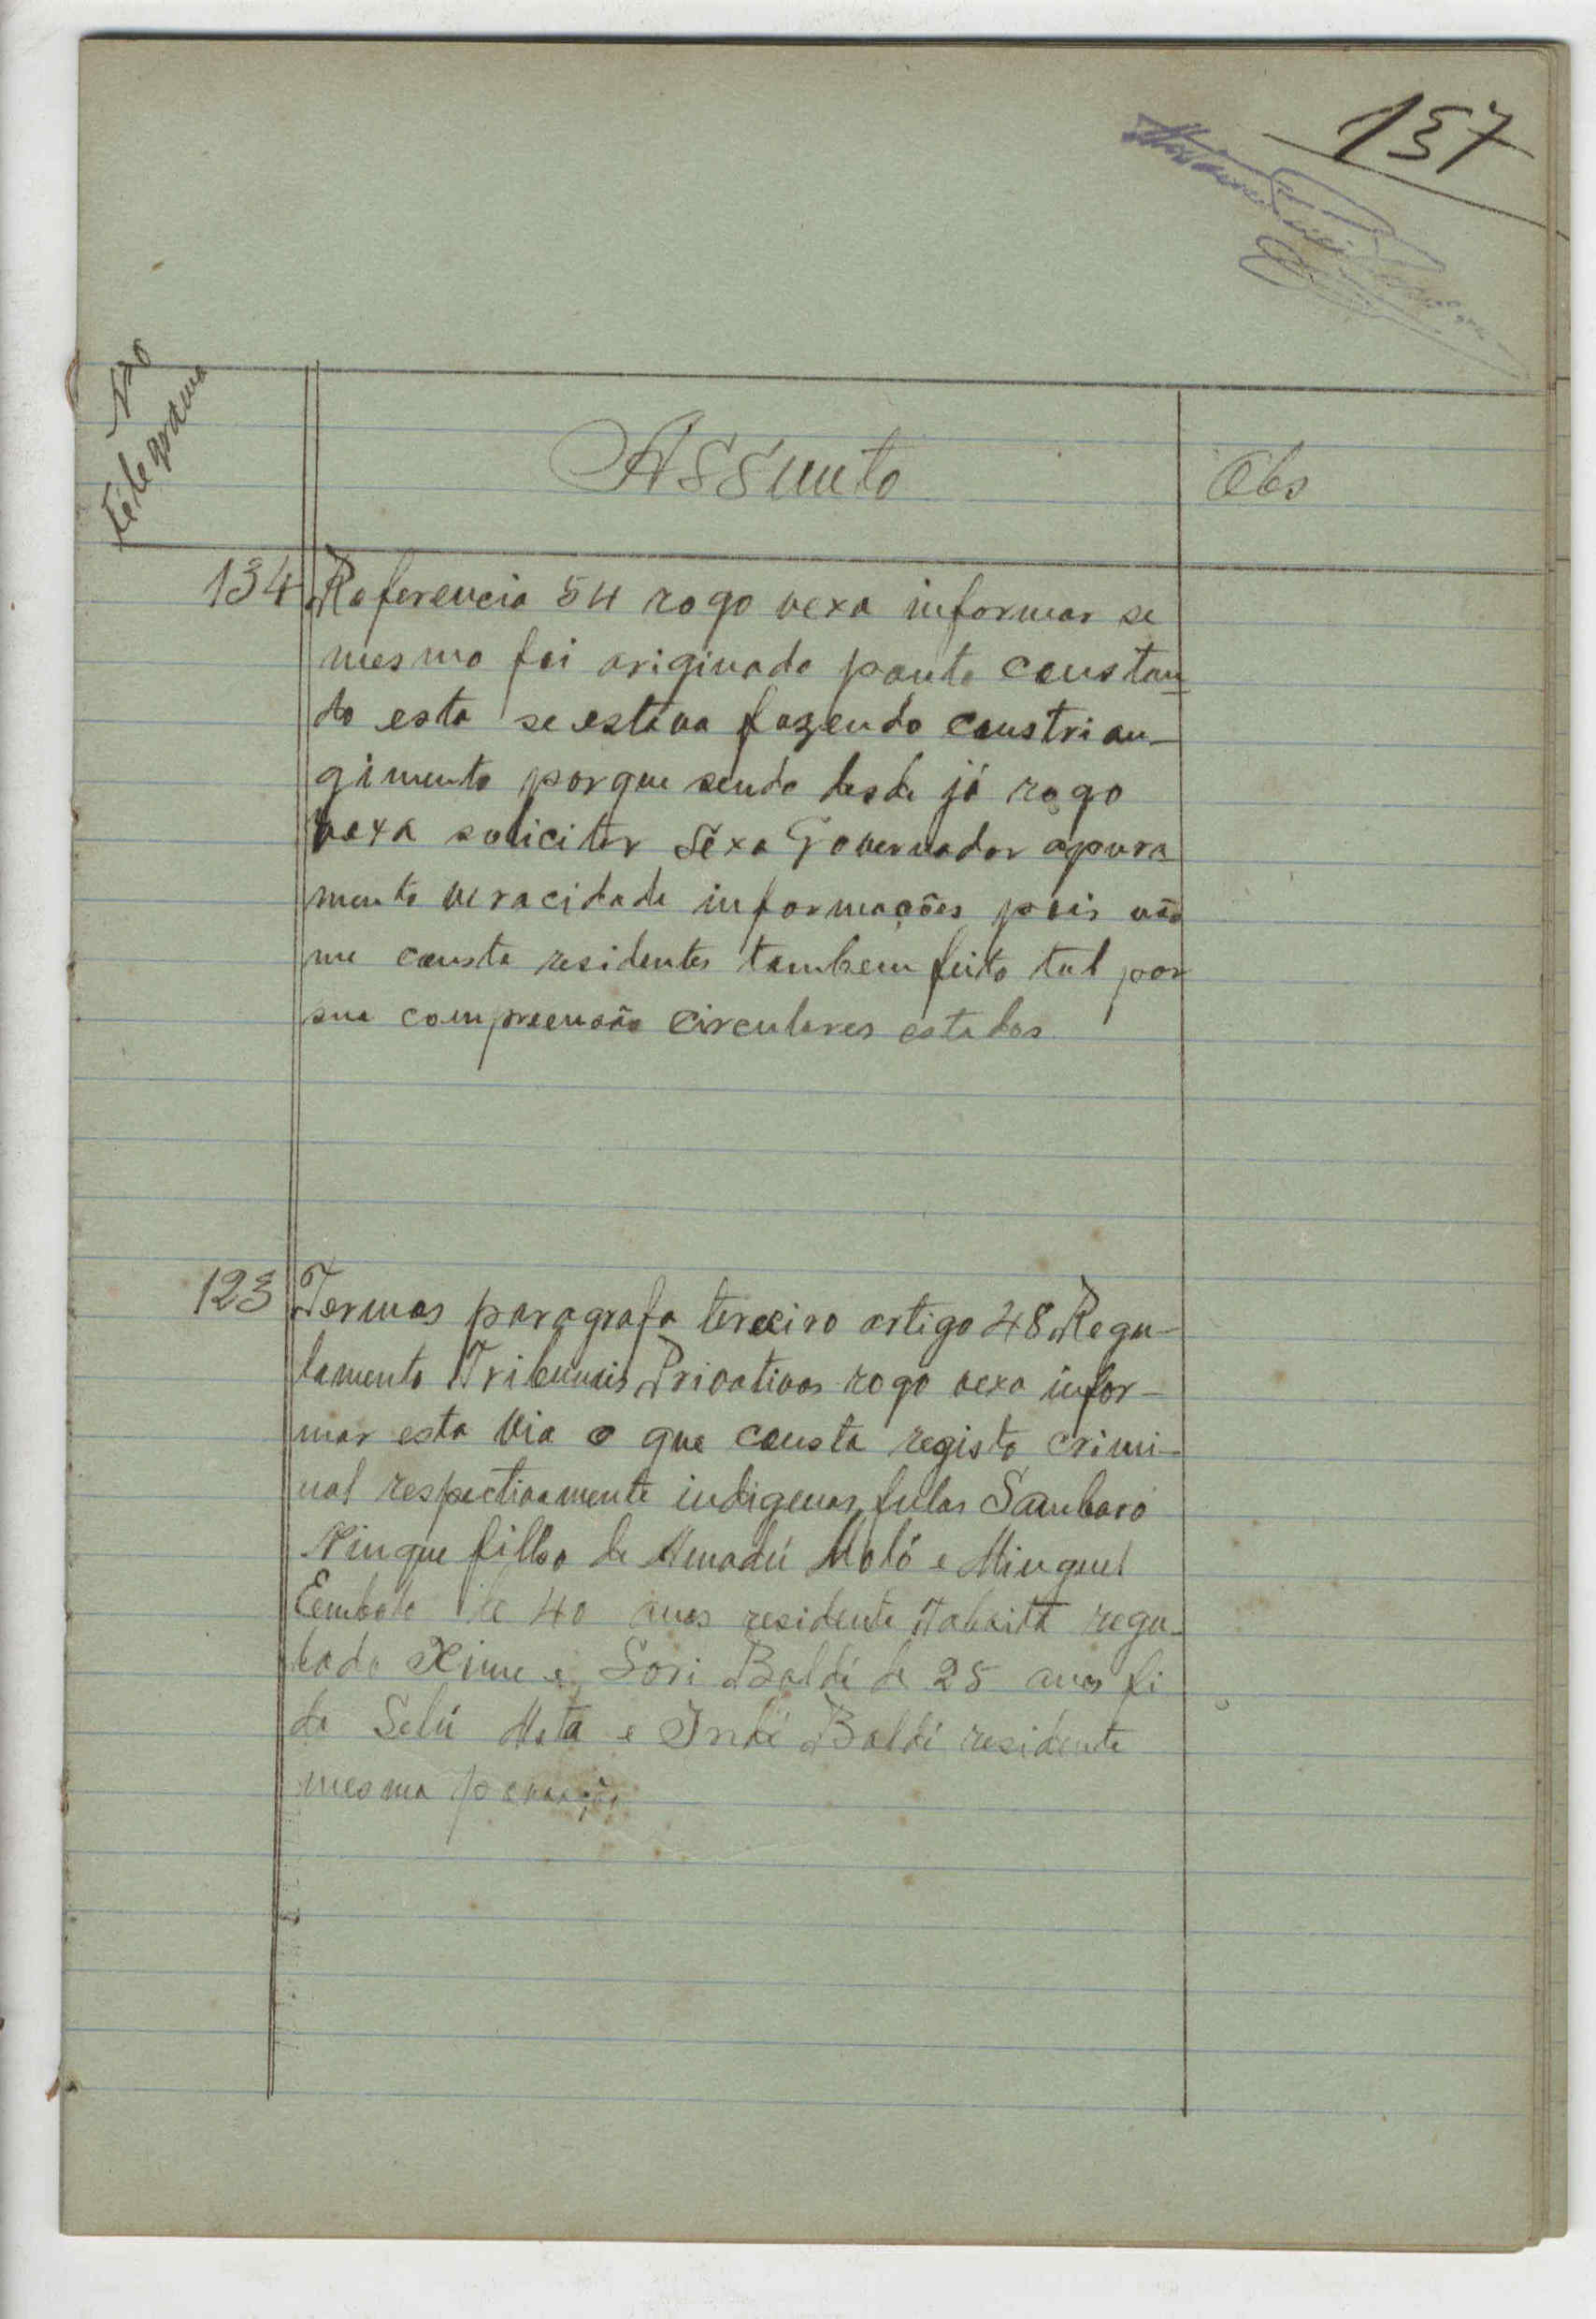 157
No
telegrama
Assunto
Obs
134 Referencia 54 rogo vexa informar se
mesmo foi originado ponto constan-
do esta se estava fazendo constrian-
gimento porque sendo desde já rogo
vexa solicitar Sexa Governador apura
mento veracidade informações pois não
me consta residentes tambem feito tal por
sua compreensão circulares estados
123 Termos paragrafo terceiro artigo 48 Regu-
lamento Tribunais Privativos rogo vexa infor-
mar esta via o que consta registo crimi-
nal respectivamente indigenas fulas Sambaro
filho de Amadú Moló e Minguel
Embalo de 40 anos residente regu-
lado Xime e Sori Baldé de 25 anos fi
de Selú e Indé Baldé residente
mesma povoação